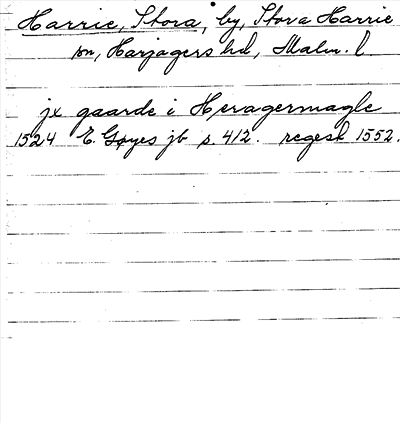 Harrie, Stora, by, Stora Harrie
sn, Harjagers hd, Malm. l.
jx gaarde i Heragermagle
1524 E. Gøyes jb s. 412. regesk 1552.